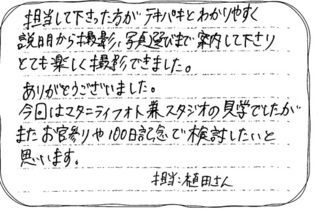 担当して下さった方がテキパキとわかりやすく
説明から撮影、写真選びまで案内して下さり
とても楽しく撮影できました。
ありがとうございました。
今回はマタニティフォト兼スタジオの見学でしたが
またお宮参りや100日記念で検討したいと
思います。
担当:植田さん